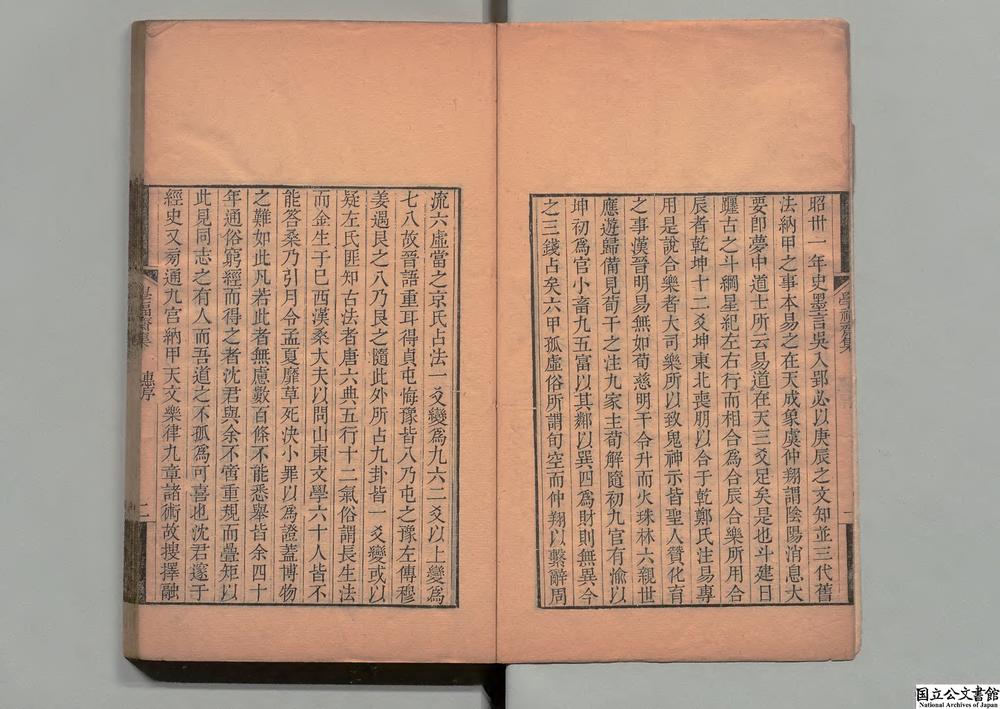 昭卅一年史墨言吳入郢必以庚辰之文知並三代舊
法納甲之事本易之在天成象虞仲翔謂陰陽消息大
要卽夢中道士所云易道在天三爻足矣是也斗建日
躔古之斗綱星紀左右行而相合爲合辰合樂所用合
辰者乾坤十二爻坤東北喪朋以合于乾鄭氏注易專
用是說合樂者大司樂所以致鬼神示皆聖人贊化育
之事漢晉明易無如荀慈明干令升而火珠林六親世
應遊歸備見荀干之注九家主荀解隨初九官有渝以
坤初爲官小畜九五富以其鄰以巽四爲財則無異今
之三錢占矣六甲孤虛俗所謂旬空而仲翔以繫辭周
流六虛當之京氏占法一爻變爲九六二爻以上變爲
七八故晉語重耳得貞屯悔豫皆八乃屯之豫左傳穆
姜遇艮之八乃艮之隨此外所占九卦皆一爻變或以
疑左氏匪知古法者唐六典五行十二氣俗謂長生法
而金生于巳西漢桑大夫以問山東文學六十人皆不
能答桑乃引月令孟夏靡草死決小罪以爲證蓋博物
之難如此凡若此者無慮數百條不能悉舉皆余四十
年通俗窮經而得之者沈君與余不啻重規而疊矩以
此見同志之有人而吾道之不孤爲可喜也沈君邃于
經史又旁通九宮納甲天文樂律九章諸術故搜擇融
學福齋集
惠序
二
国立公文書館
National Archives of Japan